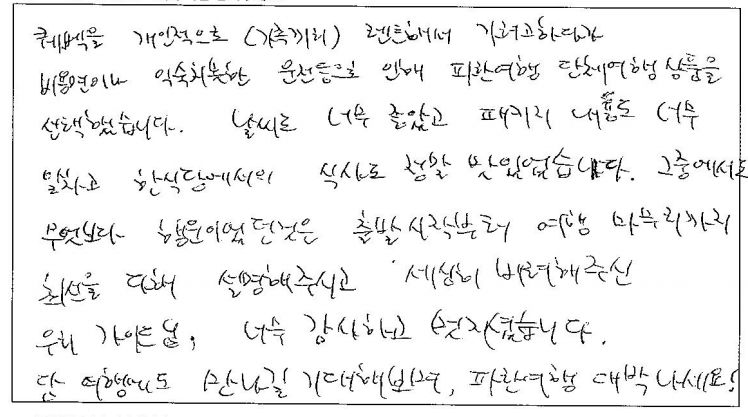 퀘벡을 개인적으로 (가족끼리) 렌트해서 가려고하다가
비용면이나 익숙치못한 운전등으로 인해 파란여행 단체여행 상품을
선택했습니다. 날씨도 너무 좋았고 패키지 내용도 너무
알차고 한식당에서의 식사도 정말 맛있었습니다. 그중에서도
무엇보다 행운이었던것은 출발시작부터 여행 마무리까지
최선을 다해 설명해주시고 세심히 배려해주신
우리 가이드님, 너무 감사하고 멋지셨습니다.
담 여행에도 만나길 기대해보며, 파란여행 대박나세요!